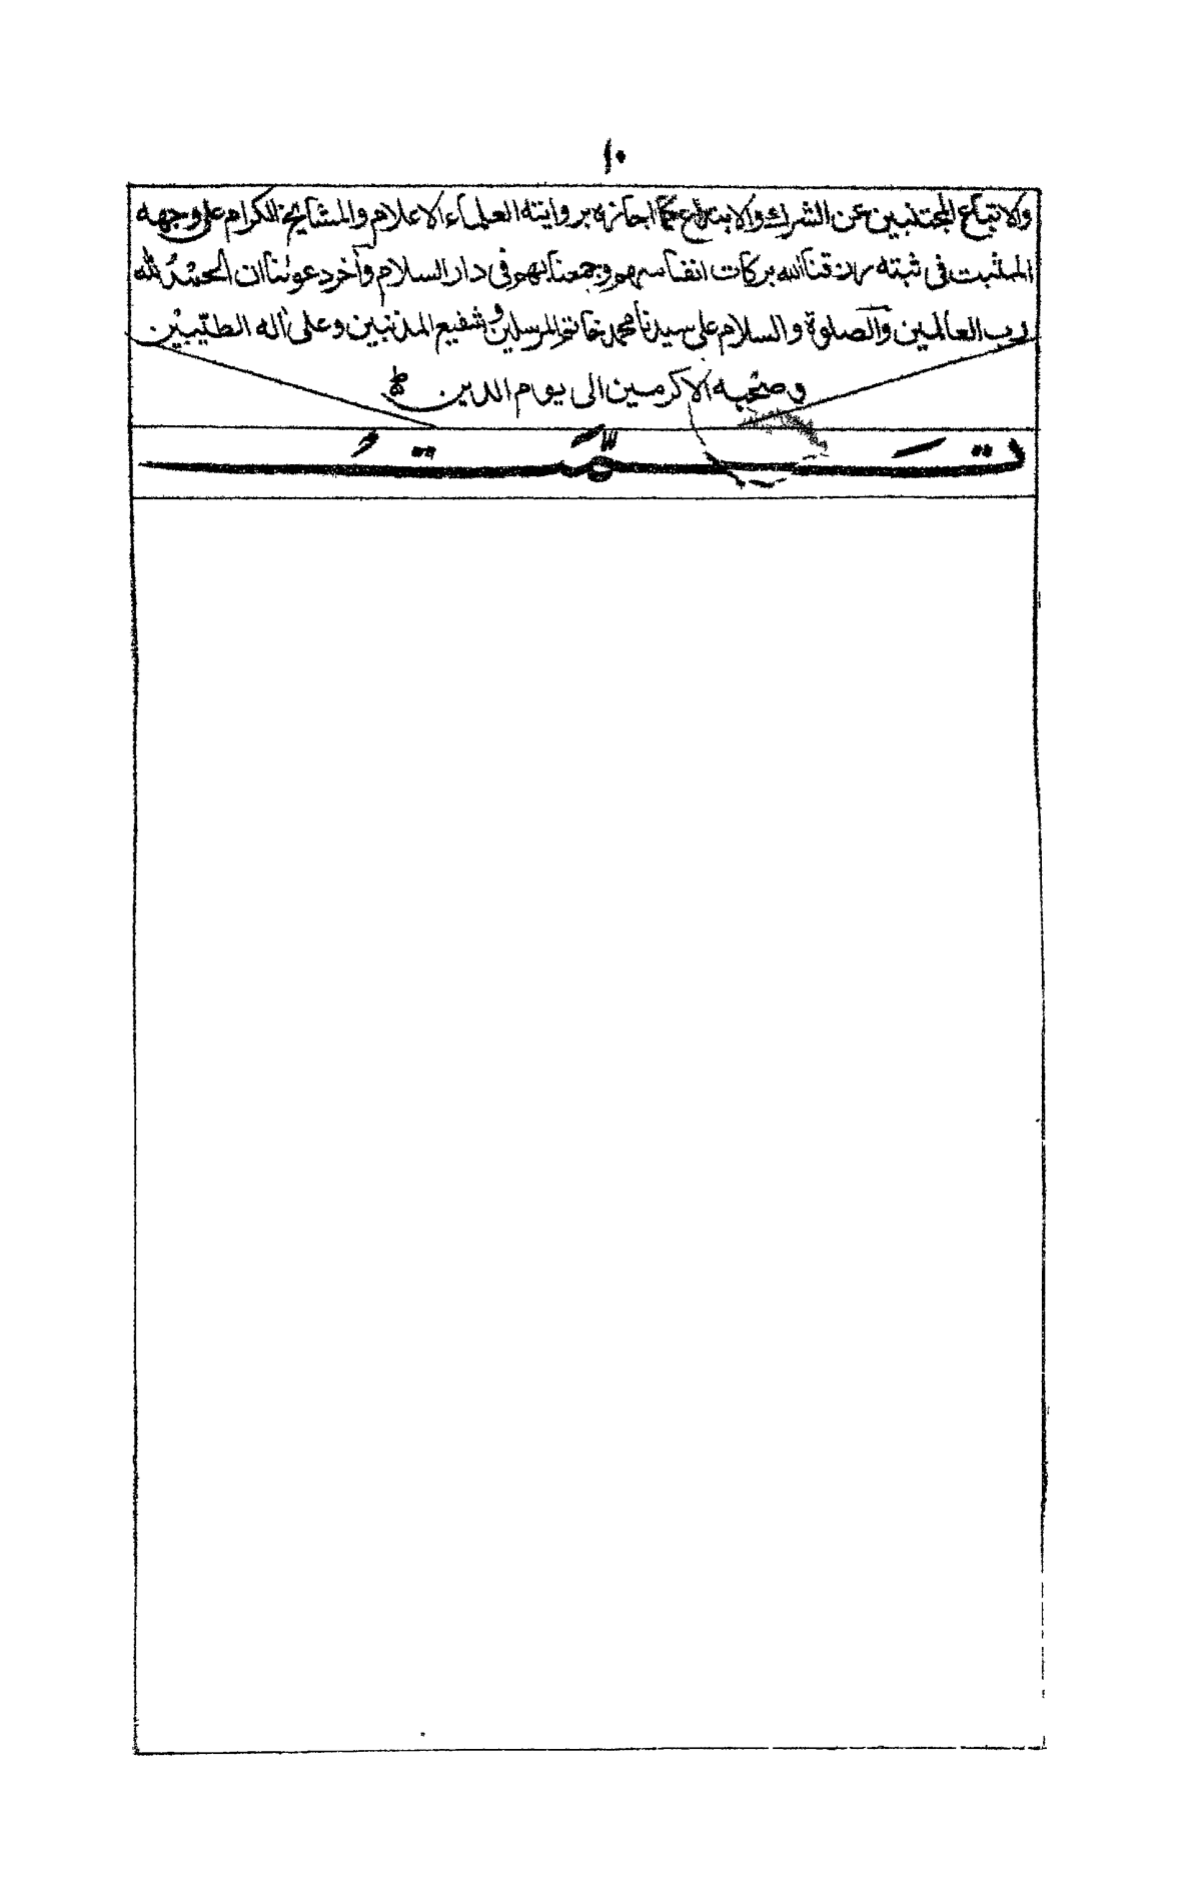 ١٠
والاتباع المجتنبين عن الشرك والابتداع عما اجازه بروايته العلماء الاعلام والمشايخ الكرام على وجهه
المثبت فى ثبته رزقنا الله بركات انفاسهم وجمعنا بهم فى دار السلام وآخر دعوٰنا ان الحمد لله
رب العالمين والصلوة والسلام على سيدنا محمد خاتم المرسلين وشفيع المذنبين وعلى آله الطيّبين
وصحبه الاكرمين الى يوم الدين
تَمَّتْ